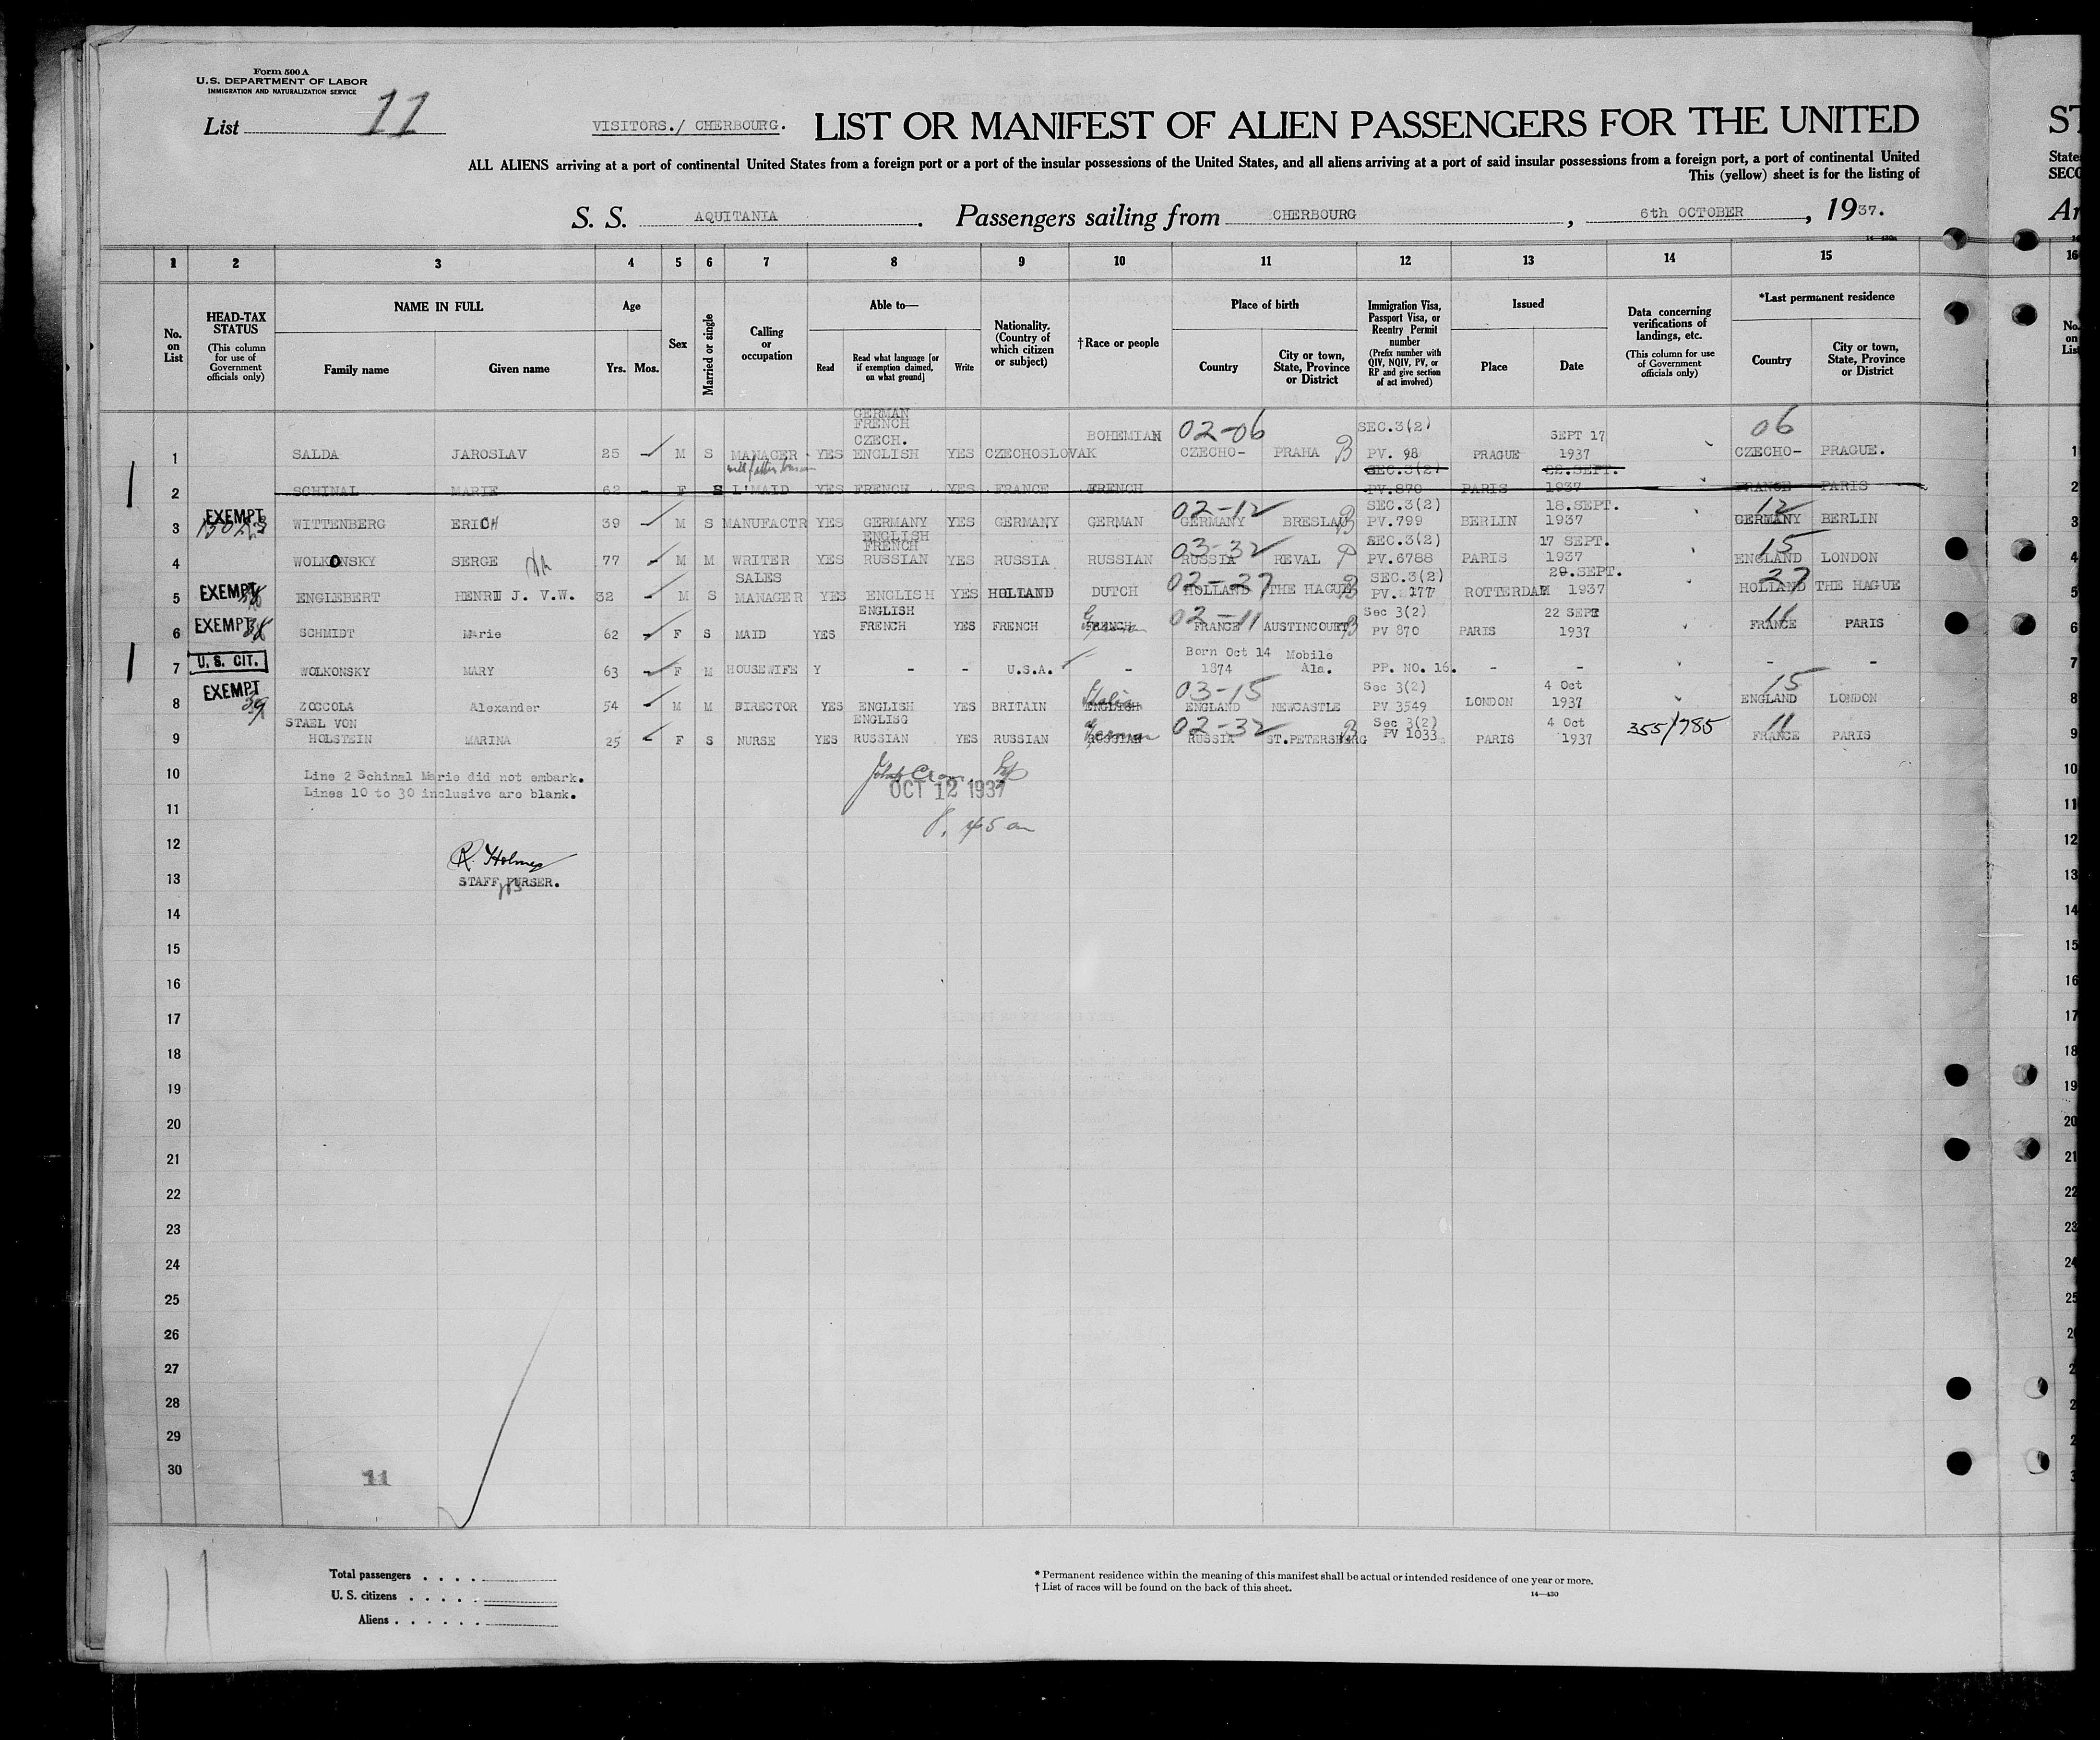 Form 500 A
U.S. DEPARTMENT OF LABOR
IMMIGRATION AND NATURALIZATION SERVICE
List 11
VISITORS./ CHERBOURG. LIST OR MANIFEST OF ALIEN PASSENGERS FOR THE UNITED ST
ALL ALIENS arriving at a port of continental United States from a foreign port or a port of the insular possessions of the United States, and all aliens arriving at a port of said insular possessions from a foreign port, a port of continental United State
This (yellow) sheet is for the listing of SECO
S. S. AQUITANIA. Passengers sailing from CHERBOURG, 6th OCTOBER, 1937. Ar
1 2 3 4 5 6 7 8 9 10 11 12 13 14 15 16
No. on List
HEAD-TAX STATUS (This column for use of Government officials only)
NAME IN FULL
Family name Given name
Age
Yrs. Mos.
Sex
Married or single
Calling or occupation
Able to—
Read Read what language [or if exemption claimed, on what ground] Write
Nationality. (Country of which citizen or subject)
†Race or people
Place of birth
Country City or town, State, Province or District
Immigration Visa, Passport Visa, or Reentry Permit number (Prefix number with QIV, NQIV, PV, or RP and give section of act involved)
Issued
Place Date
Data concerning verifications of landings, etc. (This column for use of Government officials only)
*Last permanent residence
Country City or town, State, Province or District
No. on List
GERMAN
FRENCH
CZECH. BOHEMIAN 02-06 SEC.3(2) SEPT 17 06
1 SALDA JAROSLAV 25 M S MANAGER YES ENGLISH YES CZECHOSLOVAK CZECHO- PRAHA B PV. 98 PRAGUE 1937 CZECHO- PRAGUE. 1
SEC.3(2) 22.SEPT.
2 SCHINAL MARIE 62 - F S L'MAID YES FRENCH YES FRANCE FRENCH PV.870 PARIS 1937 FRANCE PARIS 2
EXEMPT 02-12 SEC.3(2) 18.SEPT. 12
3 WITTENBERG ERICH 39 M S MANUFACTR YES GERMANY YES GERMANY GERMAN GERMANY BRESLAU B PV.799 BERLIN 1937 GERMANY BERLIN 3
ENGLISH
FRENCH 03-32 SEC.3(2) 17 SEPT. 15
4 WOLKONSKY SERGE 77 M M WRITER YES RUSSIAN YES RUSSIA RUSSIAN RUSSIA REVAL PV.6788 PARIS 1937 ENGLAND LONDON 4
EXEMPT SALES 02-27 SEC.3(2) 29.SEPT. 27
5 ENGLEBERT HENRI J. V.W. 32 M S MANAGER YES ENGLISH YES HOLLAND DUTCH HOLLAND THE HAGUE B PV. 177 ROTTERDAM 1937 HOLLAND THE HAGUE 5
EXEMPT ENGLISH 02-11 Sec 3(2) 22 SEPT 11
6 SCHMIDT Marie 62 F S MAID YES FRENCH YES FRENCH FRENCH FRANCE AUSTINCOURT B PV 870 PARIS 1937 FRANCE PARIS 6
U. S. CIT. Born Oct 14 Mobile
7 WOLKONSKY MARY 63 F M HOUSEWIFE Y - - U.S.A. - 1874 Ala. PP. NO. 16. - - - - 7
EXEMPT 39 Italian 03-15 Sec 3(2) 4 Oct 15
8 ZOCCOLA Alexander 54 M M DIRECTOR YES ENGLISH YES BRITAIN ENGLISH ENGLAND NEWCASTLE PV 3549 LONDON 1937 ENGLAND LONDON 8
STAEL VON ENGLISG German 02-32 Sec 3(2) 4 Oct 355/785 11
9 HOLSTEIN MARINA 25 F S NURSE YES RUSSIAN YES RUSSIAN RUSSIAN RUSSIA ST.PETERSBURG B PV 1033 PARIS 1937 FRANCE PARIS 9
10 Line 2 Schinal Marie did not embark. 10
Lines 10 to 30 inclusive are blank. OCT 12 1937
11 11
8.45 am
12 12
R. Holmes
13 STAFF PURSER. 13
14 14
15 15
16 16
17 17
18 18
19 19
20 20
21 21
22 22
23 23
24 24
25 25
26 2
27 2
28 2
29 2
30 3
11
Total passengers . . . .
U. S. citizens . . . . .
Aliens . . . . . .
* Permanent residence within the meaning of this manifest shall be actual or intended residence of one year or more.
† List of races will be found on the back of this sheet.
14—430